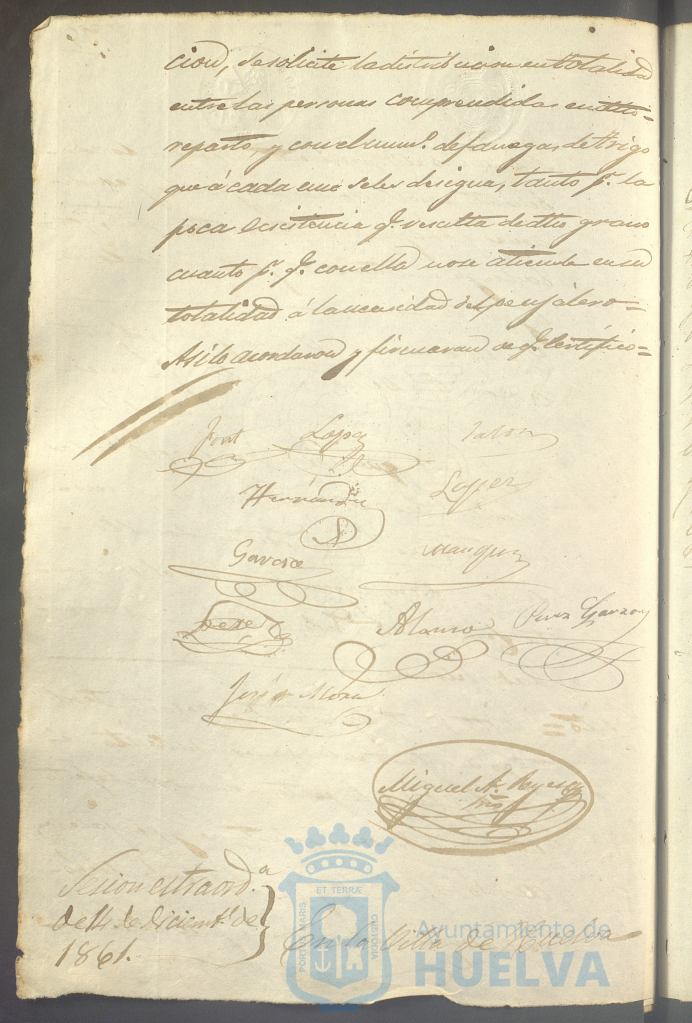 cion, se solicite la distribucion en totalidad
entre las personas comprendidas en dho=
reparto, y con el num.º de fanegas de trigo
que á cada uno se les designa, tanto p.r la
poca ecsistencia q.e resulta de dho grano
cuanto p.r q.e con ella no se atiende en su
totalidad á la necesidad del penjalero=
Asi lo acordaron y firmaron de q.e Certifico=
Font Lopez
Hernandez Lopez
Garcia Marquez
Perez Alonso Perez Garzon
José Mora
Miguel A. Reyes
Srio
Sesion estraord.a
de 14 de Diciemb.e de
1861.
En la Villa de Huelva
PORTUS MARIS ET TERRÆ CUSTODIA
Ayuntamiento de
HUELVA